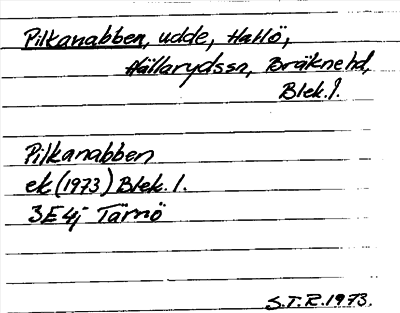 Pilkanabben, udde, Hallö,
Hällarydssn, Bräknehd,
Blek. l.
Pilkanabben
ek (1973) Blek. l.
3E4j Tärnö
S.T.R. 1973.